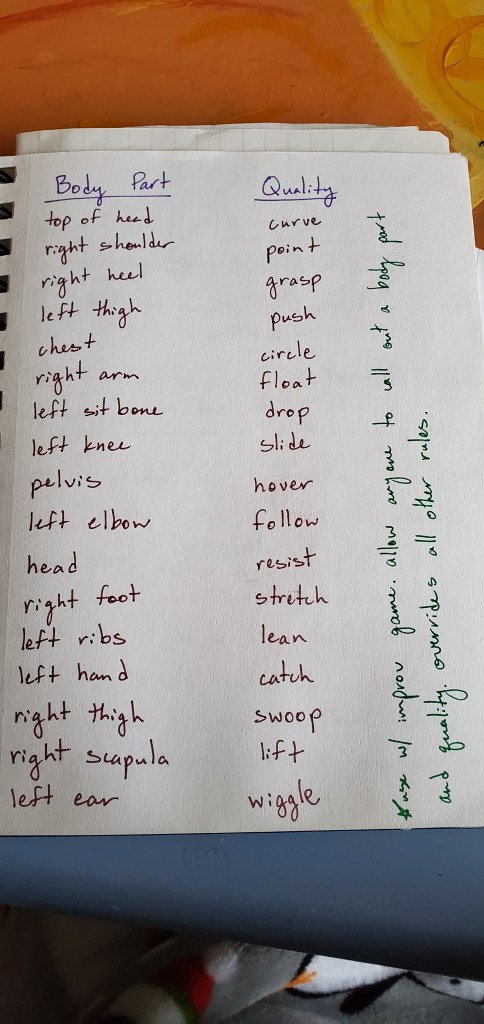 Body Part Quality
top of head curve
right shoulder point
right heel grasp
left thigh push
chest circle
right arm float
left sit bone drop
left knee slide
pelvis hover
left elbow follow
head resist
right foot stretch
left ribs lean
left hand catch
right thigh swoop
right scapula lift
left ear wiggle
*use w/ improv game. allow anyone to call out a body part
and quality. overrides all other rules.